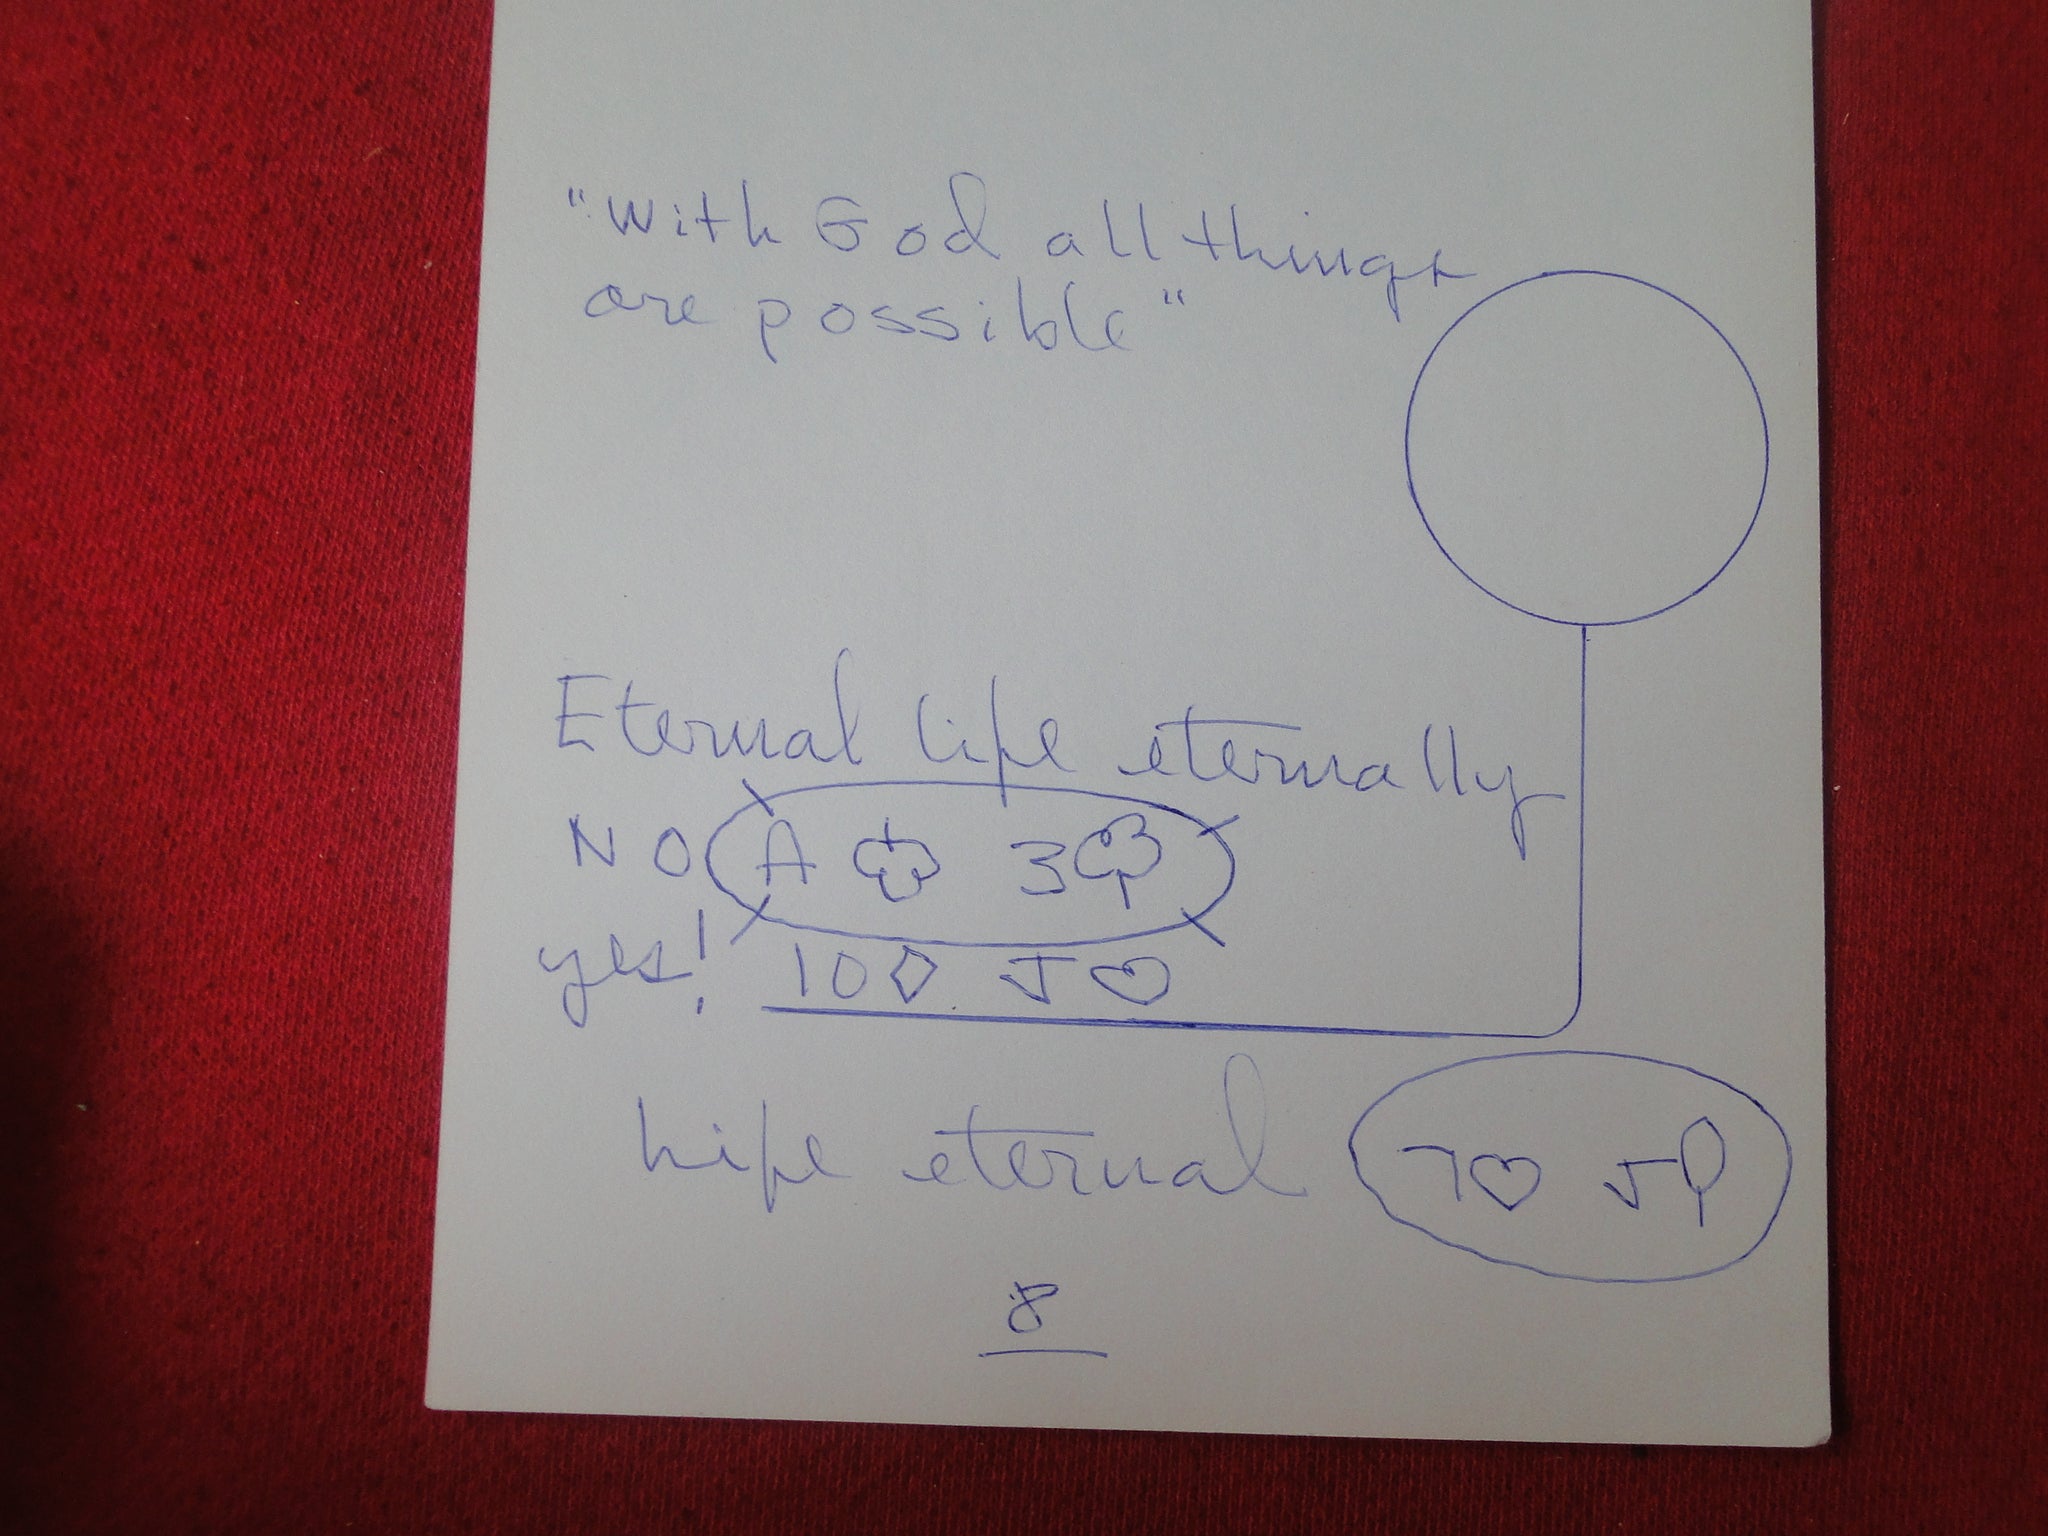 "With God all things
are possible"
Eternal life eternally
NO A ♣ 3 ♣
yes! 10 ♦ J ♥
Life eternal 7 ♥ J
8